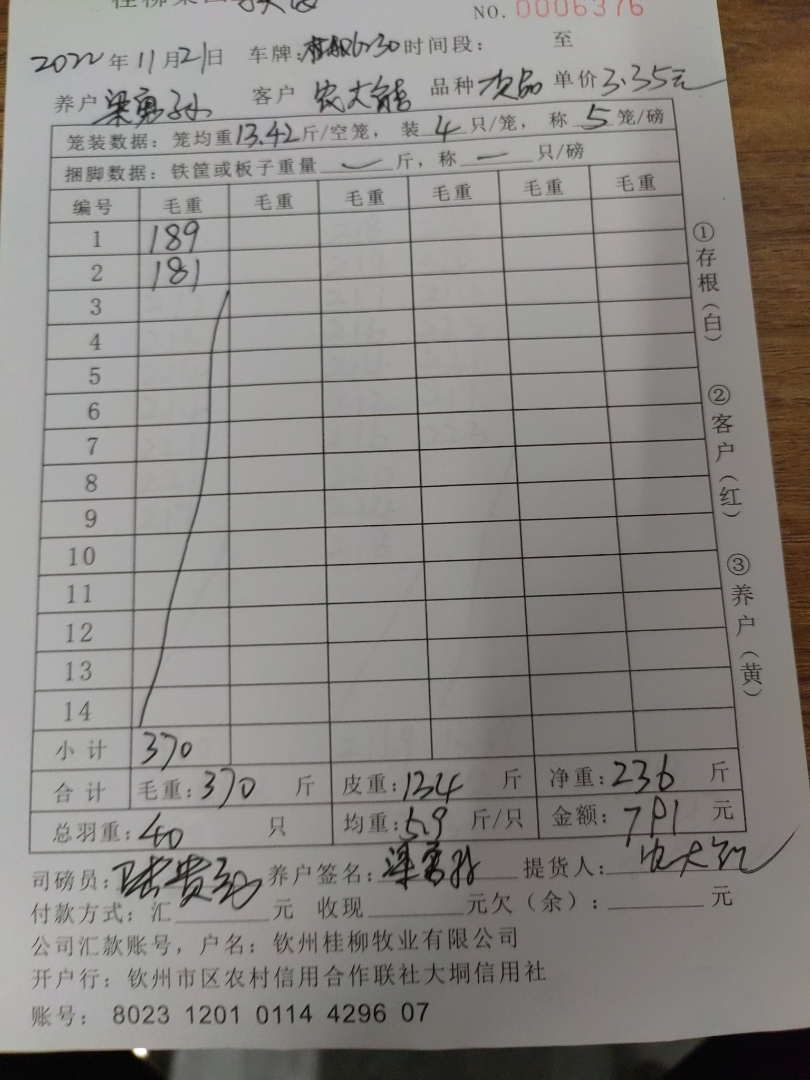 NO. 0006376
2022年11月21日 车牌: 6230 时间段: 至
养户 客户 农大 品种 次品 单价 3.35元
笼装数据: 笼均重13.42斤/空笼, 装 4 只/笼, 称 5 笼/磅
捆脚数据: 铁筐或板子重量 一 斤, 称 一 只/磅
编号 毛重 毛重 毛重 毛重 毛重 毛重
1 189
2 181
3
4
5
6
7
8
9
10
11
12
13
14
小计 370
合计 毛重: 370 斤 皮重: 134 斤 净重: 236 斤
总羽重: 40 只 均重: 5.9 斤/只 金额: 791 元
司磅员: 养户签名: 提货人: 农大
付款方式: 汇 元 收现 元欠(余): 元
公司汇款账号, 户名: 钦州桂柳牧业有限公司
开户行: 钦州市区农村信用合作联社大垌信用社
账号: 8023 1201 0114 4296 07
①存根(白) ②客户(红) ③养户(黄)